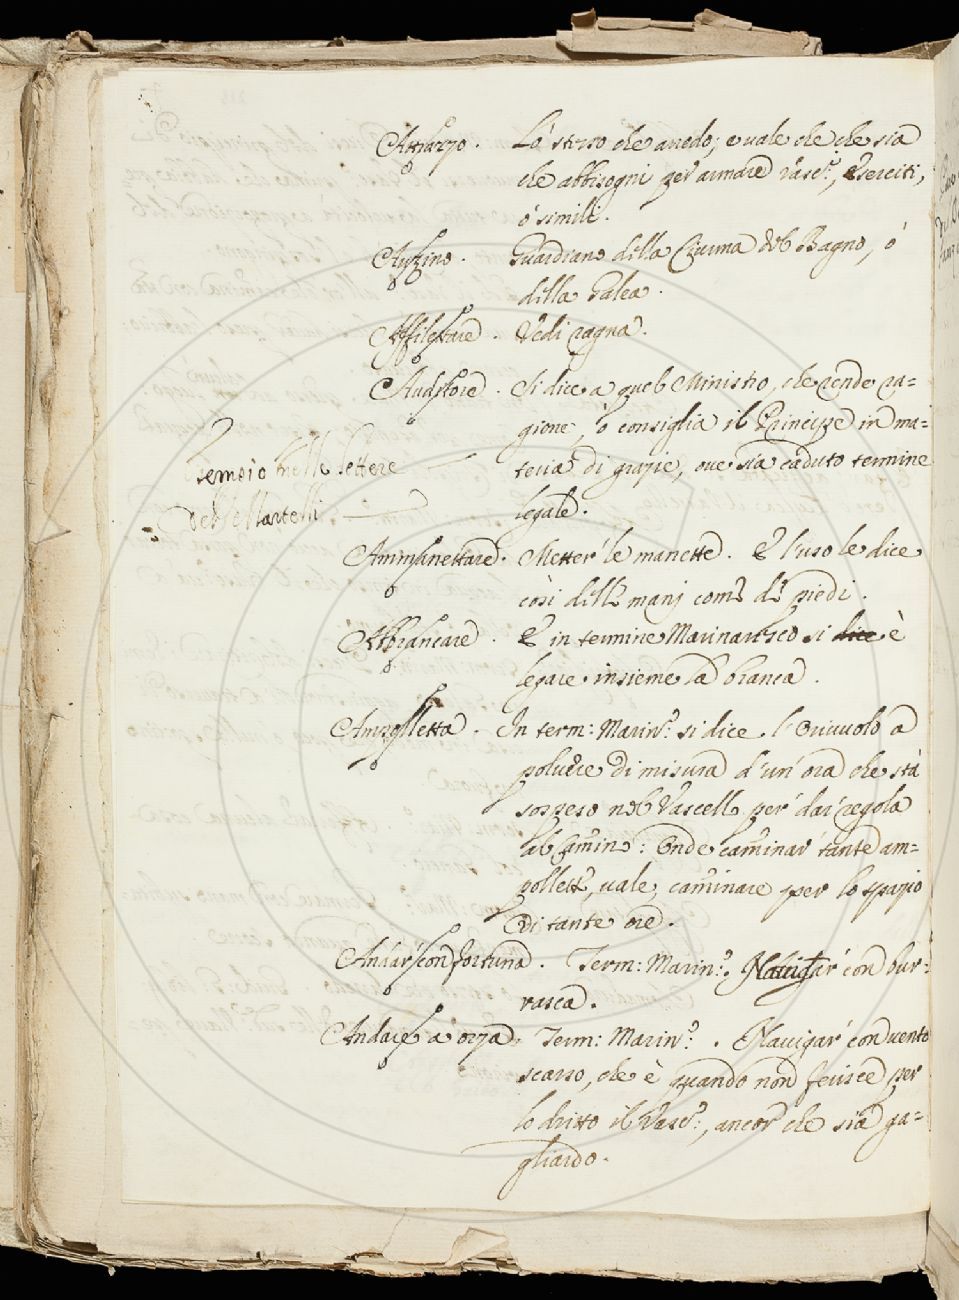 Attrazzo. Lo stesso che aredo; e vale che che sia
che abbisogni per armare Vasc:, Eserciti,
ò simili.
Auzino. Guardiano della Ciurma del Bagno, ò
della Galea.
Affilettare. Vedi ragna.
Auditore. Si dice a quel Ministro, che rende ra=
gione, ò consiglia il Principe in ma=
teria di grazie, ove sia caduto termine
legale.
Esempio nelle lettere
del Martelli
Ammanettare. Metter le manette. E l'uso le dice
così delle manj come de piedi.
Abbrancare. E in termine Marinaresco si dice è
legare insieme la branca.
Ampolletta. In term: Marin: si dice l'Orivuolo a
polvere di misura d'un' ora che stà
sospeso nel Vascell per dar regola
al Camin: Onde caminar tante am=
pollett, vale, caminare per lo spazio
di tante ore.
Andar con fortuna. Term: Marin:. Navigar con bur=
rasca.
Andare a orza. Term: Marin:. Navigar con vento
scarso, che è quando non ferisce per
lo dritto il Vasc:, ancor che sia ga=
gliardo.